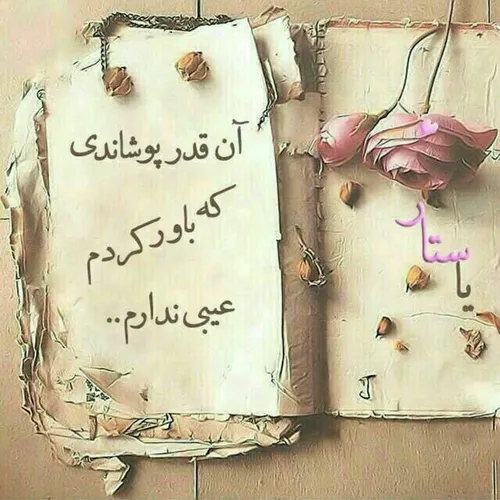 آن قدر پوشاندی
که باورکردم
عیبی ندارم..
یا ستار